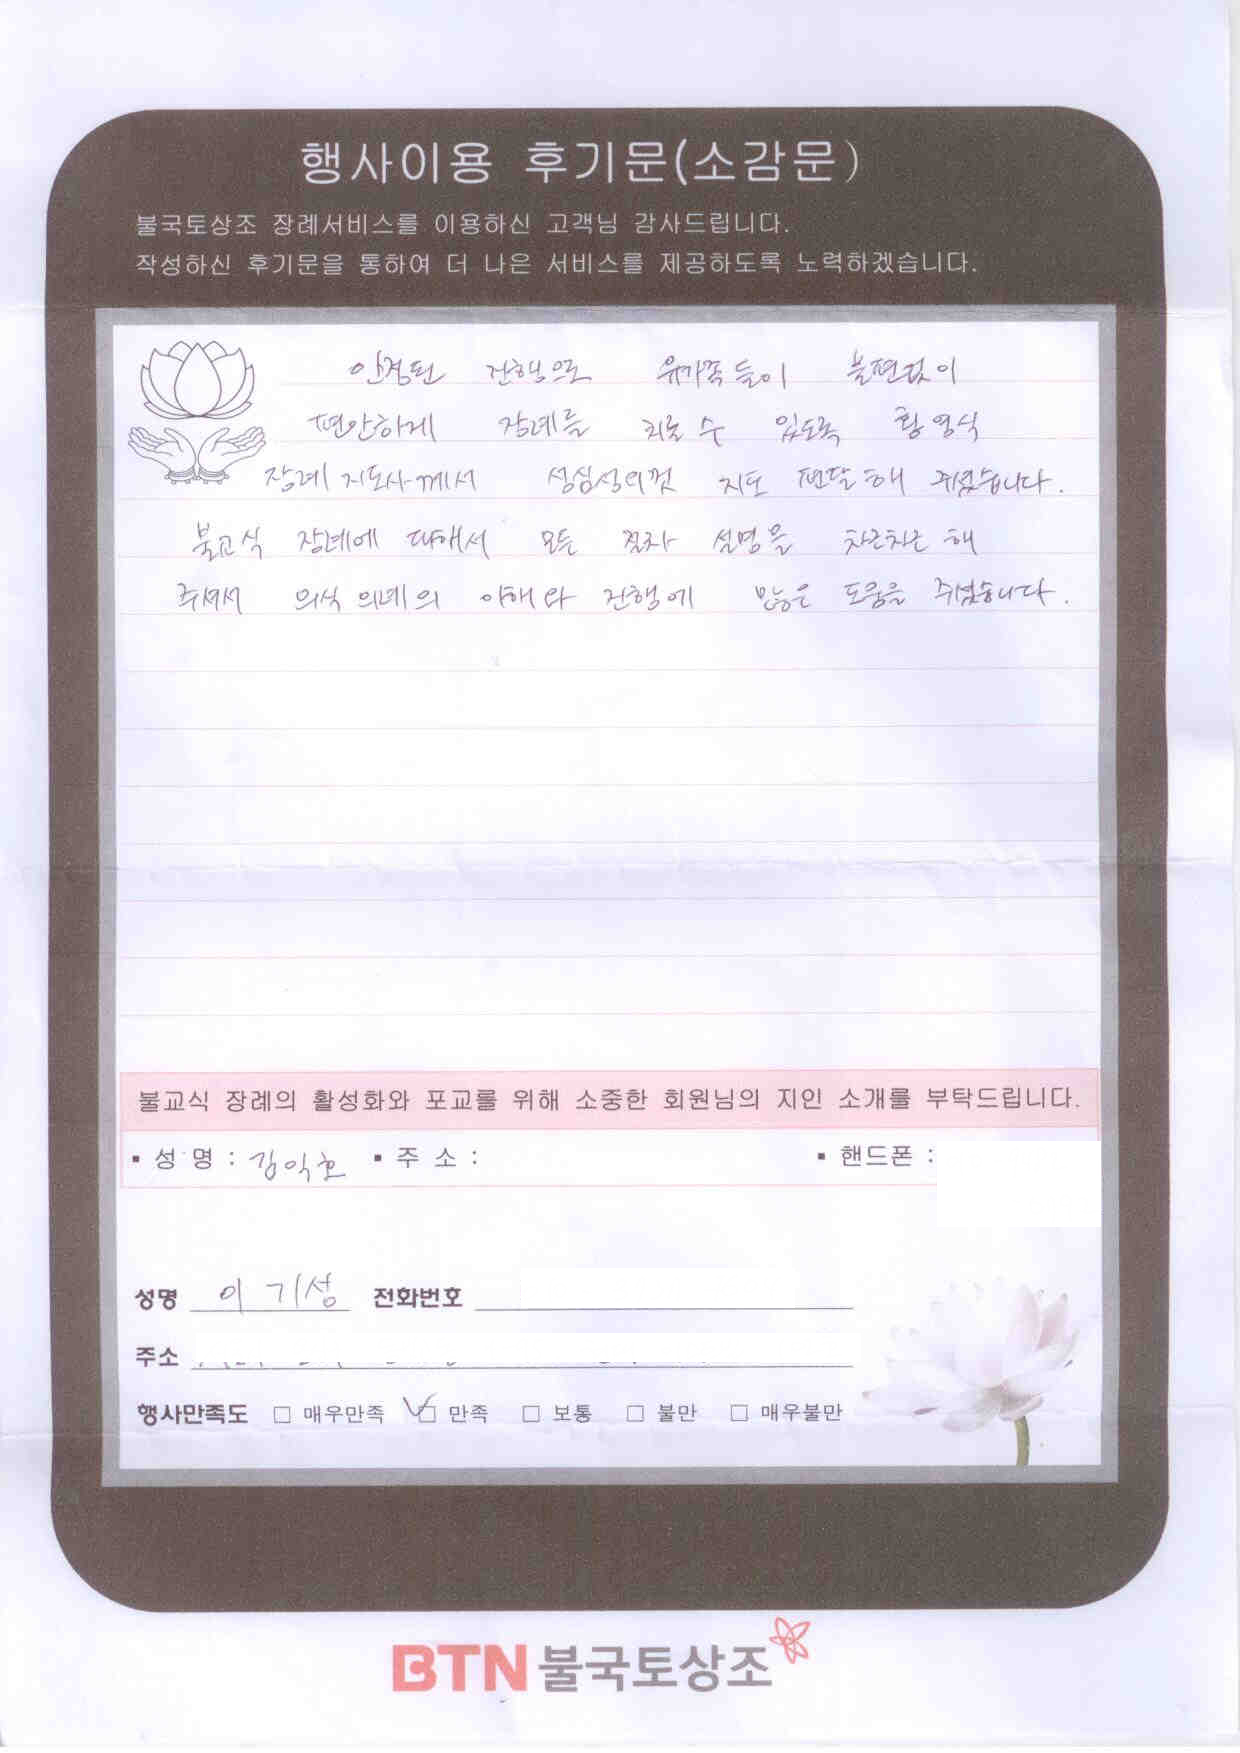 행사이용 후기문(소감문)
불국토상조 장례서비스를 이용하신 고객님 감사드립니다.
작성하신 후기문을 통하여 더 나은 서비스를 제공하도록 노력하겠습니다.
안정된 진행으로 유가족들이 불편없이
편안하게 장례를 치룰 수 있도록 황영식
장례지도사께서 성심성의껏 지도 편달해 주셨습니다.
불교식 장례에 대해서 모든 절차 설명을 차근차근 해
주셔서 의식 의례의 이해와 진행에 많은 도움을 주셨습니다.
불교식 장례의 활성화와 포교를 위해 소중한 회원님의 지인 소개를 부탁드립니다.
▪ 성 명 : 김익호 ▪ 주 소 : ▪ 핸드폰 :
성명 이기성 전화번호
주소
행사만족도 □ 매우만족 ☑ 만족 □ 보통 □ 불만 □ 매우불만
BTN 불국토상조